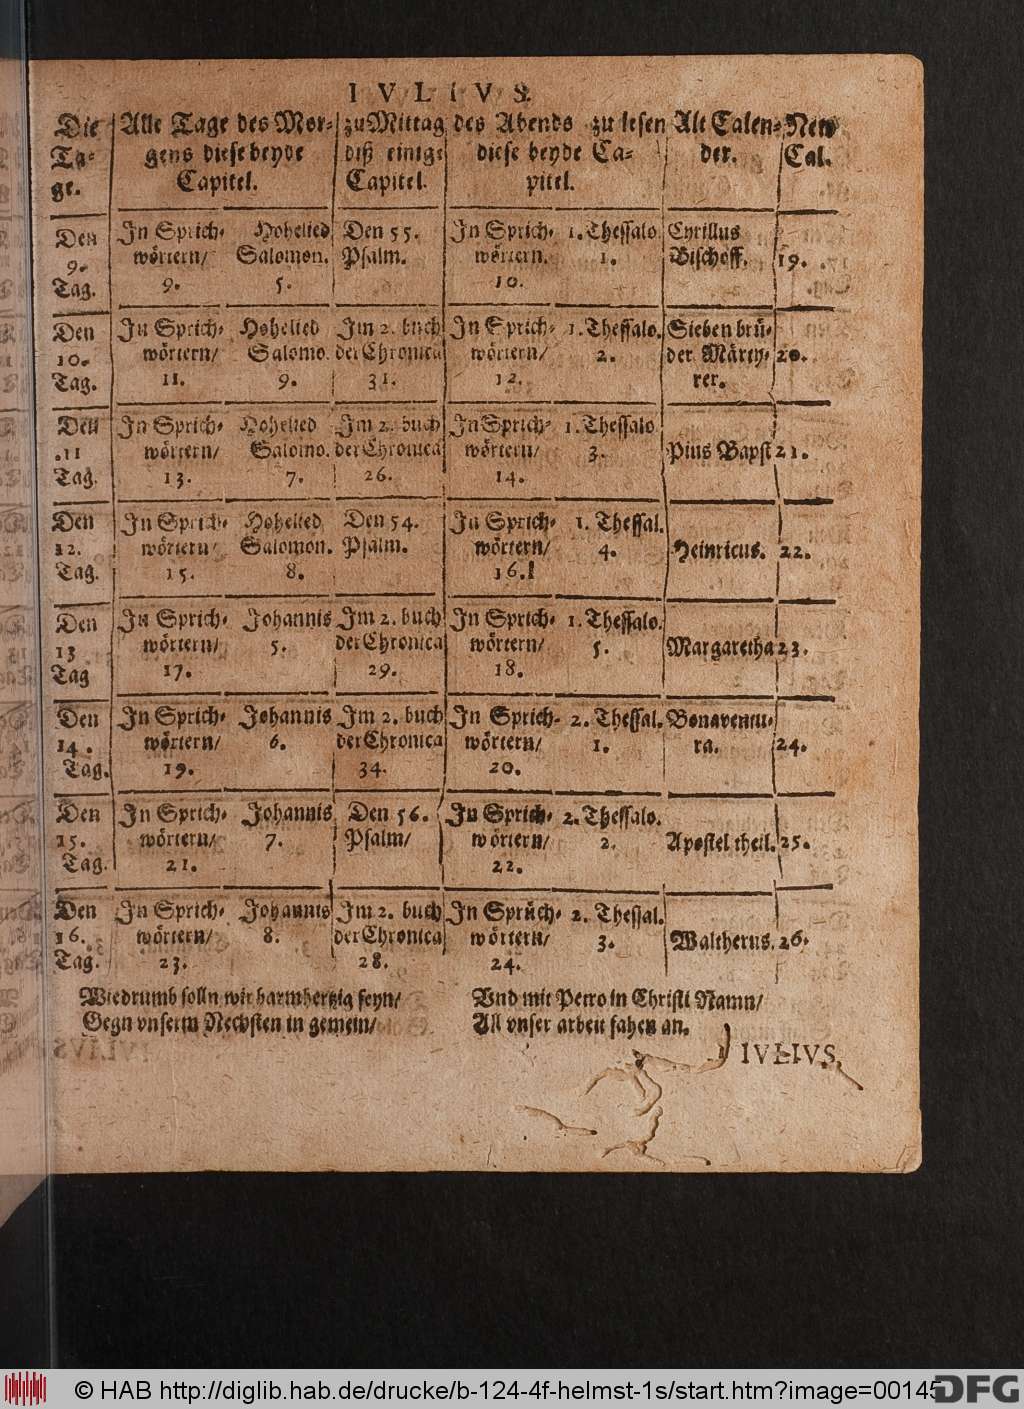 IVLIVS.
Die Alle Tage des Mor- zu Mittag des Abends zu lesen Alt Calen- New
Ta- gens diese beyde diß einige diese beyde Ca- der. Cal.
ge. Capitel. Capitel. pitel.
Den In Sprich- Hohelied Den 55. In Sprich- 1. Thessalo. Cyrillus
9. wörtern/ Salomon. Psalm. wörtern. 1. Bischoff. 19.
Tag. 9. 5. 10.
Den In Sprich- Hohelied Im 2. buch In Sprich- 1. Thessalo. Sieben brü-
10. wörtern/ Salomo. der Chronica wörtern/ 2. der Märty- 20.
Tag. 11. 9. 31. 12. rer.
Den In Sprich- Hohelied Im 2. buch In Sprich- 1. Thessalo
.11 wörtern/ Salomo. der Chronica wörtern/ 3. Pius Bapst 21.
Tag. 13. 7. 26. 14.
Den In Sprich- Hohelied Den 54. In Sprich- 1. Thessal.
12. wörtern/ Salomon. Psalm. wörtern/ 4. Heinricus. 22.
Tag. 15. 8. 16.
Den In Sprich- Johannis Im 2. buch In Sprich- 1. Thessalo.
13 wörtern/ 5. der Chronica wörtern/ 5. Margaretha 23.
Tag 17. 29. 18.
Den In Sprich- Johannis Im 2. buch In Sprich- 2. Thessal. Bonaventu-
14. wörtern/ 6. der Chronica wörtern/ 1. ra. 24.
Tag. 19. 34. 20.
Den In Sprich- Johannis Den 56. In Sprich- 2. Thessalo.
15. wörtern/ 7. Psalm/ wörtern/ 2. Apostel theil. 25.
Tag. 21. 22.
Den In Sprich- Johannis Im 2. buch In Sprüch- 2. Thessal.
16. wörtern/ 8. der Chronica wörtern/ 3. Waltherus. 26.
Tag. 23. 28. 24.
Wiedrumb solln wir barmhertzig seyn/ Vnd mit Petro in Christi Namn/
Gegn vnserm Nechsten in gemein/ All vnser arbeit fahen an.
IVLIVS.
© HAB http://diglib.hab.de/drucke/b-124-4f-helmst-1s/start.htm?image=00145
DFG